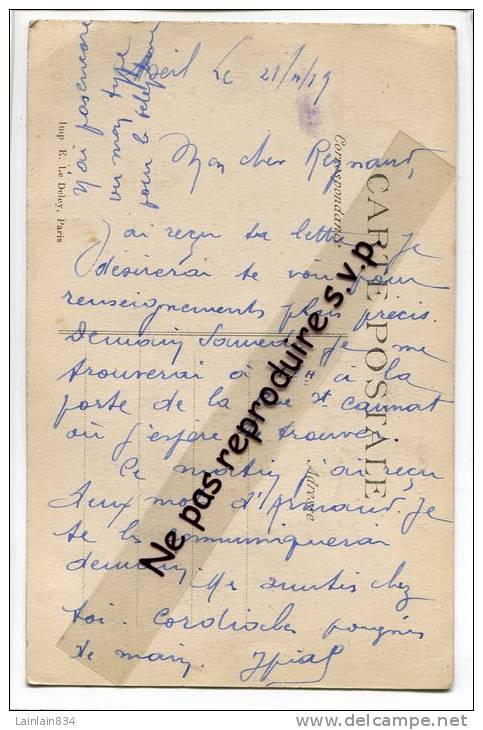 Le 21/11/19
Mon cher Reynaud,
J'ai reçu ta lettre, je
désirerai te voir pour
renseignements plus précis.
Demain Samedi je me
trouverai à à la
porte de la rue St Cannat
où j'espère te trouver.
Ce matin j'ai reçu
deux d'Armand. Je
te les communiquerai
demain.
amitiés chez
toi. Cordiales poignées
de main.
n'ai pas encore
vu mon type
pour le téléphone
Imp. E. Le Deley, Paris
CARTE POSTALE
Correspondance
Adresse
Ne pas reproduire s.v.p.
Lainlain834
www.delcampe.net